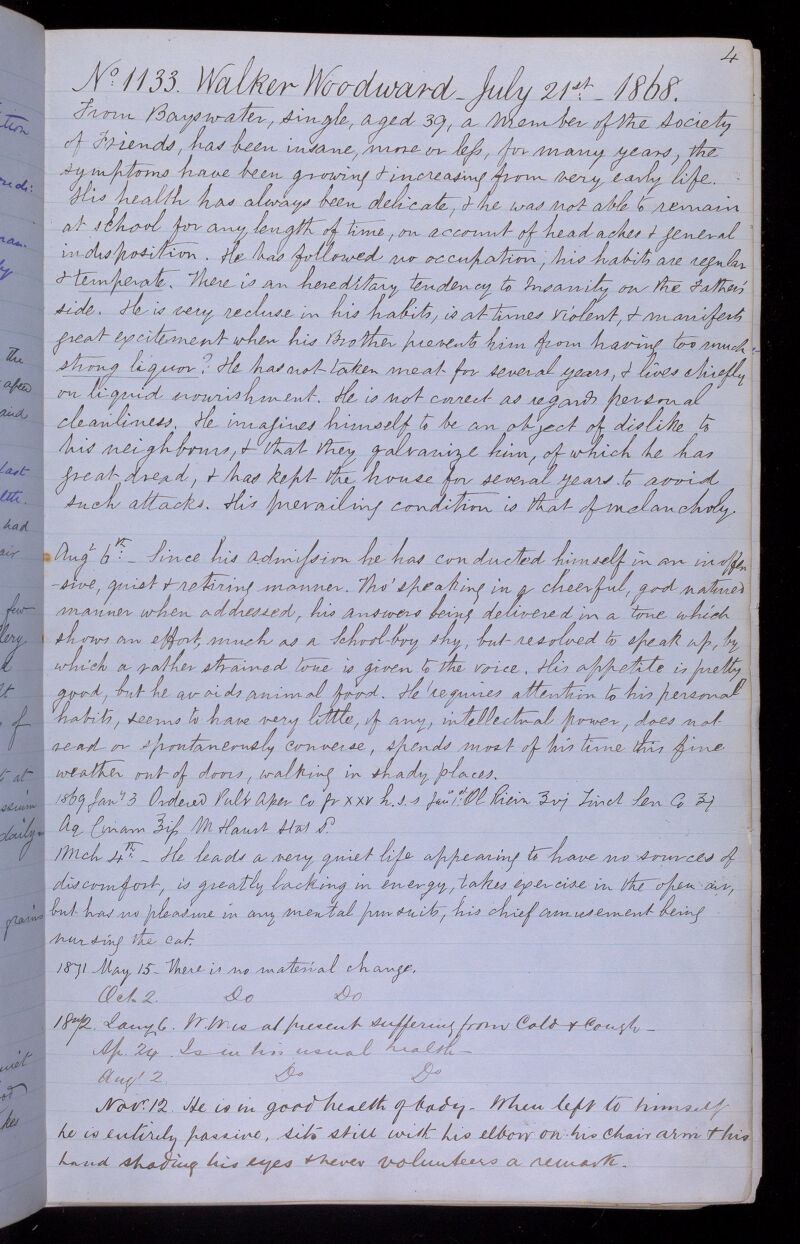 4
No. 1133. Walker Woodward - July 21st - 1868.
From Bayswater, single, aged 39, a Member of the Society
of Friends, has been insane, more or less, for many years, the
symptoms have been growing & increasing from very early life.
His health has always been delicate, & he was not able to remain
at school for any length of time, on account of head aches & general
indisposition. He has followed no occupation, his habits are regular
& temperate. There is an hereditary tendency to Insanity on the Father's
side. He is very recluse in his habits, is at times violent, & manifests
great excitement when his Brother prevents him from having too much
strong liquor? He has not taken meat for several years, & lives chiefly
on liquid nourishment. He is not correct as regards personal
cleanliness. He imagines himself to be an object of dislike to
his neighbours, & that they galvanize him, of which he has
great dread, & has kept the house for several years to avoid
such attacks. His prevailing condition is that of melancholy.
Augt 6th - Since his admission he has conducted himself in an inoffen
-sive, quiet & retiring manner. Tho' speaking in a cheerful, good natured
manner when addressed, his answers being delivered in a tone which
shows an effort, much as a School-boy shy, but resolved to speak up, by
which a rather strained tone is given to the voice. His appetite is pretty
good, but he avoids animal food. He requires attention to his personal
habits, seems to have very little, if any, intellectual power, does not
read or spontaneously converse, spends most of his time this fine
weather out of doors, walking in shady places.
1869 Jany 3 Ordered Pulv Aper Co gr xxv h.s.s Ol Ricin Tinct Sen Co
Aq Cinnam M Haust Stat S.
Mch 4th - He leads a very quiet life appearing to have no sources of
discomfort, is greatly lacking in energy, takes exercise in the open air,
but has no pleasure in any mental pursuits, his chief amusement being
nursing the cat.
1871 May 15 - There is no material change.
Oct. 2. Do Do
1872. Jany 6. W.W. is at present suffering from Cold & Cough -
Ap. 24 Is in his usual health -
Augt 2. Do Do
Novr. 12. He is in good health of body - When left to himself
he is entirely passive, sits still with his elbow on his chair arm & his
hand shading his eyes & never volunteers a remark.